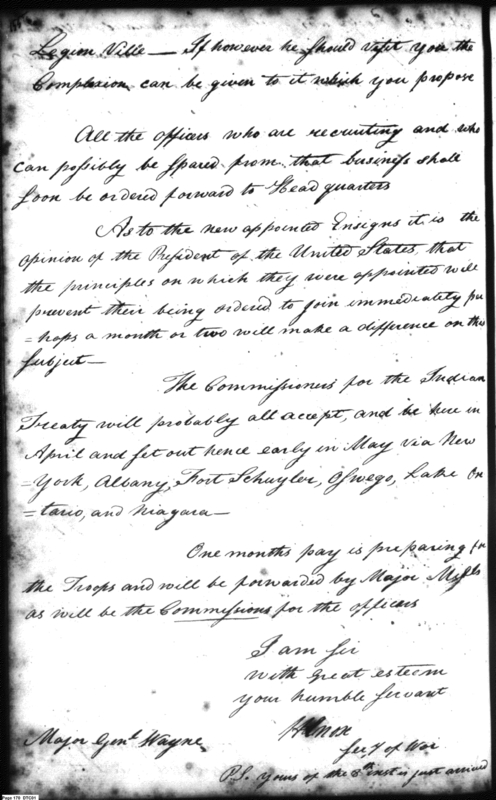 Legion Ville — If however he should visit you the
Complexion can be given to it which you propose
All the officers who are recruiting and who
can possibly be spared from that business shall
soon be ordered forward to Head quarters
As to the new appointed Ensigns it is the
opinion of the President of the United States, that
the principles on which they were appointed will
prevent their being ordered to join immediately per
=haps a month or two will make a difference on this
subject—
The Commissioners for the Indian
Treaty will probably all accept, and be here in
April and set out hence early in May via New
=York, Albany, Fort Schuyler, Oswego, Lake On
=tario, and Niagara—
One months pay is preparing for
the Troops and will be forwarded by Major
as will be the Commissions for the officers
I am sir
with great esteem
your humble servant
HKnox
Secy of War
Major Genl. Wayne
P.S. yours of the 8th inst is just arrived
Page 176 DTC01